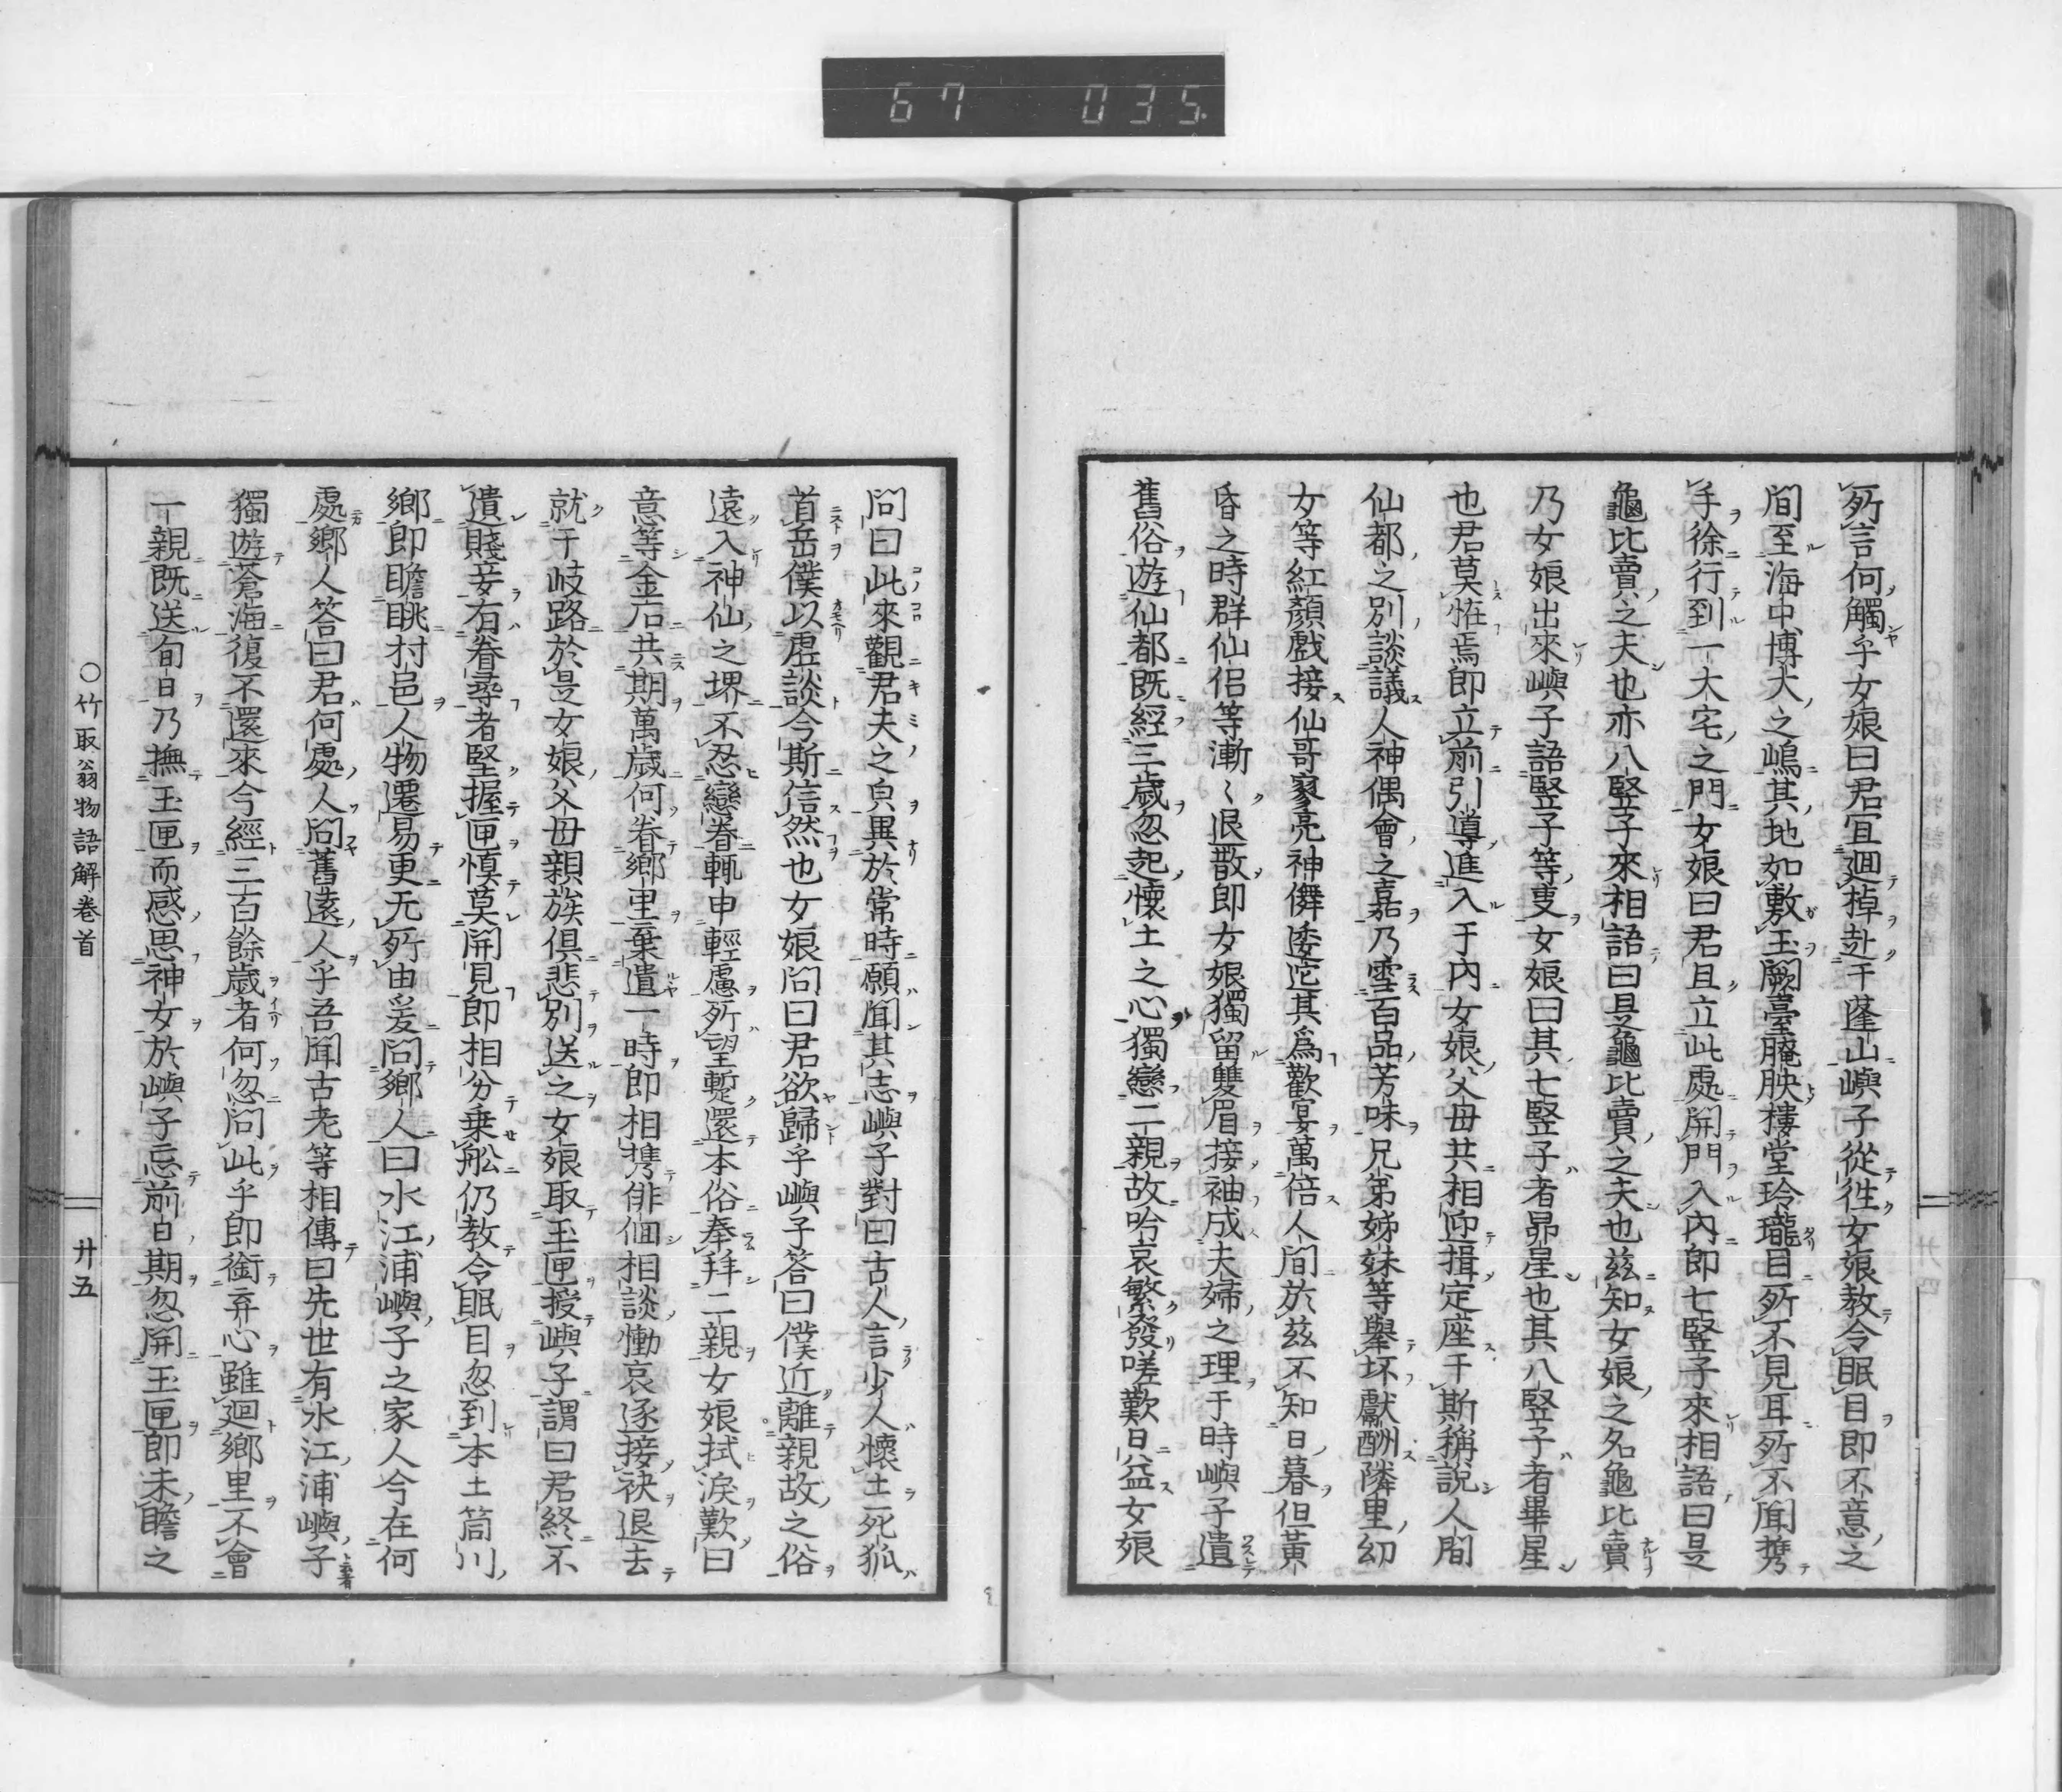 67 035
所言何觸乎女娘曰君宜廻棹赴于蓬山嶼子從往女娘教令眠目即不意之
間至海中博大之嶋其地如敷玉闕臺腌胦樓堂玲瓏目所不見耳所不聞携
手徐行到一大宅之門女娘曰君且立此處開門入內即七竪子來相語曰是
龜比賣之夫也亦八竪子來相語曰是龜比賣之夫也茲知女娘之名龜比賣
乃女娘出來嶼子語竪子等事女娘曰其七竪子者昴星也其八竪子者畢星
也君莫恠焉即立前引導進入于內女娘父母共相迎揖定座于斯稱說人間
仙都之別談議人神偶會之嘉乃雪百品芳味兄弟姊妹等擧坏獻酬隣里幼
女等紅顏戲接仙哥寥亮神儛逶迤其爲歡宴萬倍人間於茲不知日暮但黃
昏之時群仙侶等漸〻退散即女娘獨留雙眉接袖成夫婦之理于時嶼子遺
舊俗遊仙都既經三歲忽起懷土之心獨戀二親故吟哀繁發嗟歎日益女娘
問曰此來觀君夫之皃異於常時願聞其志嶼子對曰古人言少人懷土死狐
首岳僕以虛談今斯信然也女娘問曰君欲歸乎嶼子答曰僕近離親故之俗
遠入神仙之堺不忍戀眷輙申輕慮所望蹔還本俗奉拜二親女娘拭淚歎曰
意等金石共期萬歲何眷鄉里棄遺一時即相携俳佪相談慟哀逐接袂退去
就于岐路於是女娘父母親族俱悲別送之女娘取玉匣授嶼子謂曰君終不
遺賤妾有眷尋者堅握匣慎莫開見即相分乗舩仍教令眠目忽到本土筒川
鄉即瞻眺村邑人物遷易更无所由爰問鄉人曰水江浦嶼子之家人今在何
處鄉人答曰君何處人問舊遠人乎吾聞古老等相傳曰先世有水江浦嶼子
獨遊蒼海復不還來今經三百餘歲者何忽問此乎即銜弃心雖廻鄉里不會
一親既送旬日乃撫玉匣而感思神女於嶼子忘前日期忽開玉匣即未瞻之
○竹取翁物語解卷首
廿五